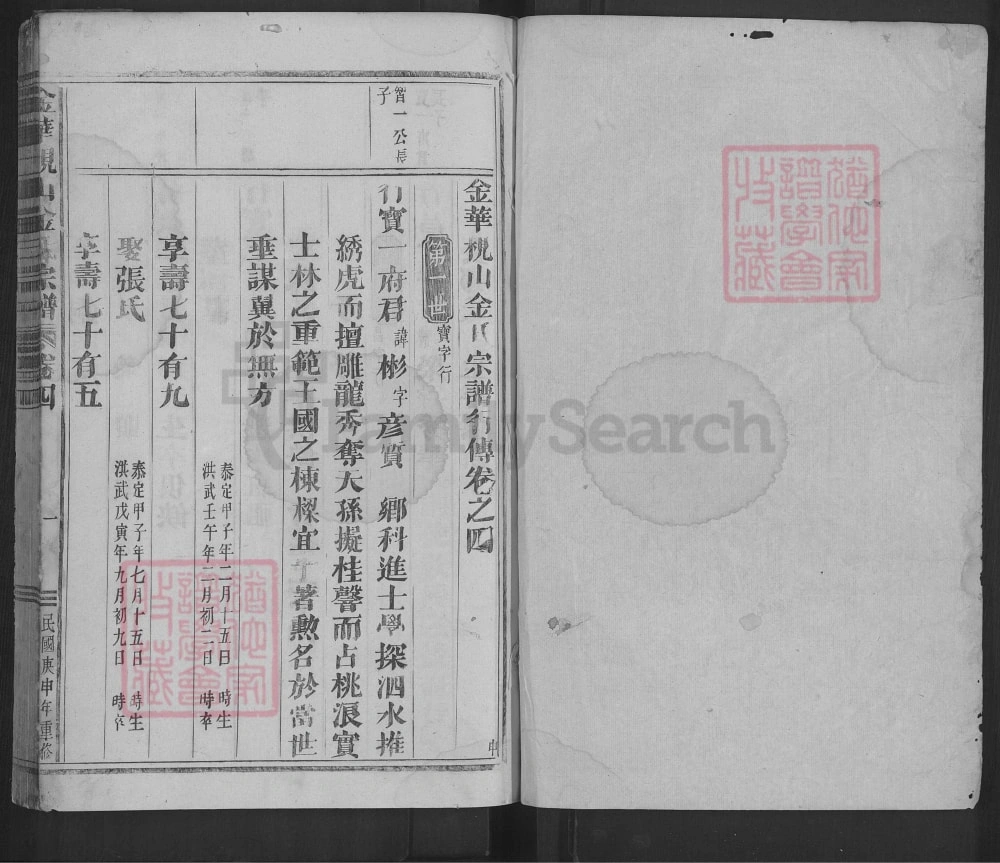 金華梘山金氏宗譜行傳卷之四
第一世 寶字行
智一公長子
行寶一府君諱彬字彥質 鄉科進士學探泗水推
綉虎而擅雕龍秀奪天孫擬桂馨而占桃浪實
士林之重範王國之棟樑宜 著勲名於當世
垂謀翼於無方
泰定甲子年二月十五日 時生
洪武壬午年二月初二日 時卒
享壽七十有九
娶張氏
泰定甲子年七月十五日 時生
洪武戊寅年九月初九日 時卒
享壽七十有五
金華梘山金氏宗譜 卷四 一 民國庚申年重修
猶他家譜學會收藏
猶他家譜學會收藏
FamilySearch